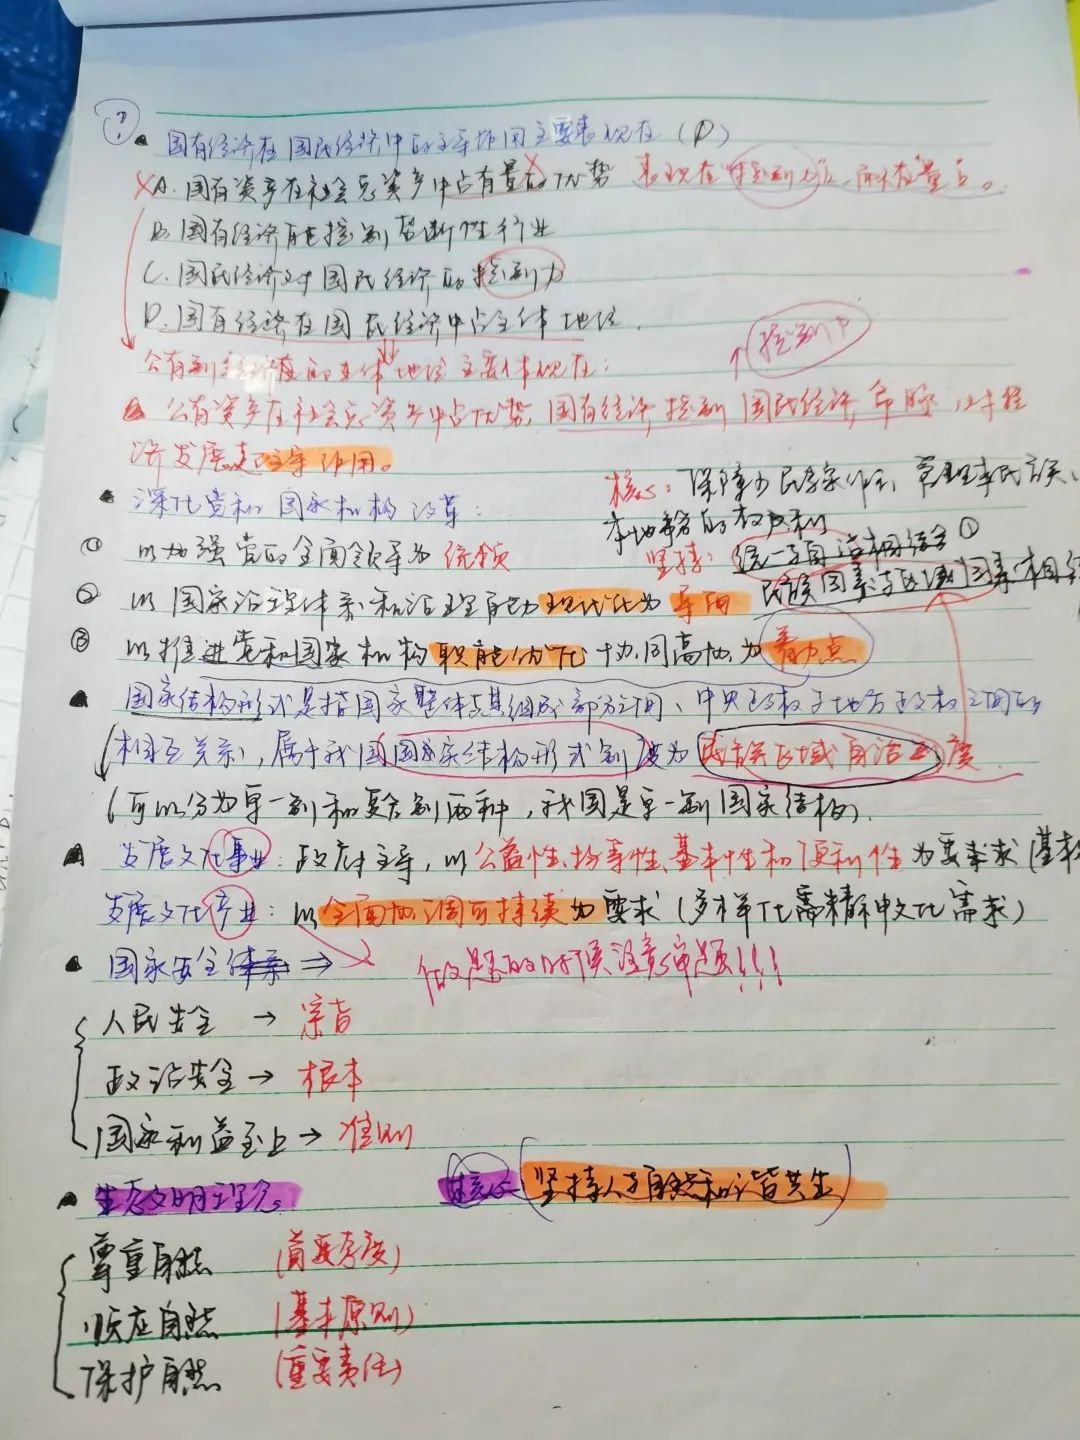 ?
国有经济在国民经济中的主导作用主要表现在（D）
×A.国有资产在社会总资产中占有量的优势 表现在"控制"上,而不在量上。
B.国有经济能控制垄断性行业
C.国民经济对国民经济的控制力
D.国有经济在国民经济中占主体地位.
↑控制力
公有制经济的主体地位主要体现在：
公有资产在社会总资产中占优势,国有经济控制国民经济命脉,对经
济发展起主导作用。
核心：保障少民当家作主,管理本民族、
本地事务的权利
深化党和国家机构改革：
坚持：统一与自治相结合①
①以加强党的全面领导为统领
民族因素与区域因素相结
②以国家治理体系和治理能力现代化为导向
③以推进党和国家机构职能优化协同高效为着力点
国家结构形式是指国家整体与其组成部分之间、中央政权与地方政权之间的
相互关系,属于我国国家结构形式制度为民族区域自治制度.
(可以分为单一制和复合制两种,我国是单一制国家结构).
发展文化事业：政府主导,以公益性、均等性、基本性和便利性为要求(基本
发展文化产业：以全面协调可持续为要求(多样化需精神文化需求)
国家安全体系 ⇒ 做题的时候注意审题!!!
人民安全→宗旨
政治安全→根本
国家利益至上→准则
生态文明理念。 核心(坚持人与自然和谐共生)
尊重自然 (首要态度)
顺应自然 (基本原则)
保护自然 (重要责任)